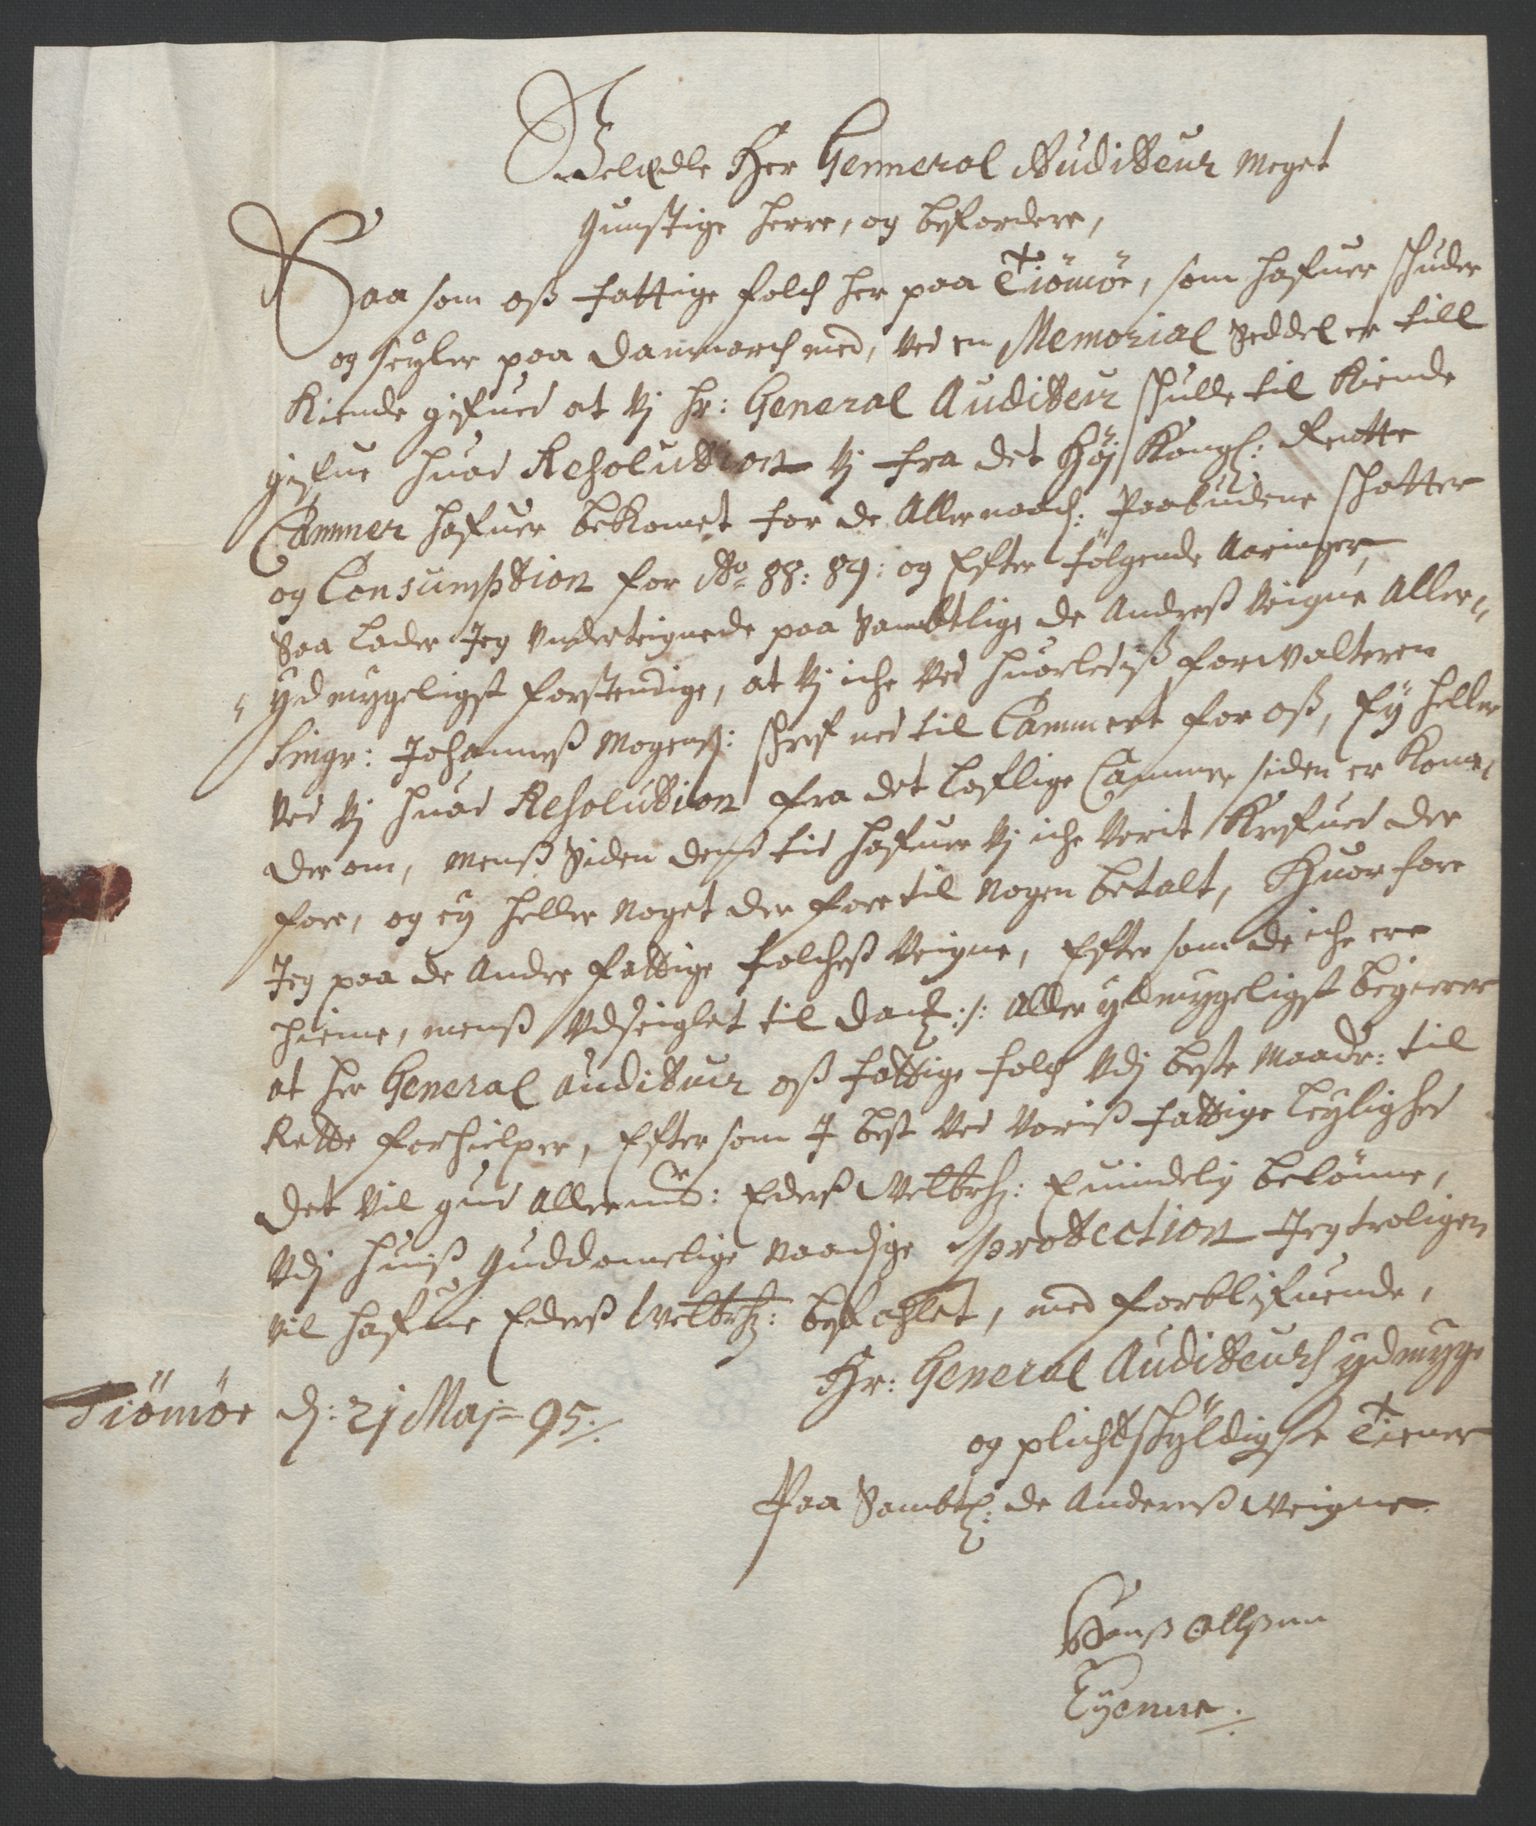 Velædle Her Gennerol Auditteur meget
gunstige herre, og befordere,
Saa som oß fattige folch her paa Tiömöe, som hafuer schuder
og seyler paa danmarch med, ved en Memorial Seddel er till
Kiende gifued at Vj Hr: General Auditteur schulle til Kiende
gifue huad Resoluttion Vj fra det Höj Kongl: Rentte
Cammer hafuer bekomet for de Allernaad: Paabudene schatter
og Consumption for Ao 88: 89: og Efter fölgende Aaringer,
Saa lader Jeg Underteignede paa Sambtlige de Andreß Veigne Aller-
ydmygeligst forstendige, at Vj iche Ved huorlediß forwalteren
Singr: Johanneß Mogenß: schref ned til Cammert for oß, Ey heller
Ved Vj huad Resoluttion fra det loflige Cammer siden er Kom-
der om, menß Siden denß tid hafuer Vj iche Verit Krefued der
fore, og ey heller noget der fore til nogen betalt, Huorfore
Jeg paa de Andre fattige folcheß Veigne, Efter som de iche ere
hieme, menß Udseiglet til Danß:/: Aller ydmygeligst begierer
at her General Auditteur oß fattige folch Udj beste Maader: til
Rette forhielper, Efter som J best Ved Voriß fattige leylighed
det Vil gud Allerm: Ederß Velbrh: Euindelig belönne,
Udj huiß guddomelige naadige protection Jeg troligen
vil hafue Ederß Velbrh: befahlet, med forblifuende,
Hr: General Auditteurs ydmyge
og plichtschyldigste Tiener
Tiömöe d: 21 Maj= 95:
Paa Sambtl: de Andereß Veigne
Hanß Ollßenn
Tyenne.